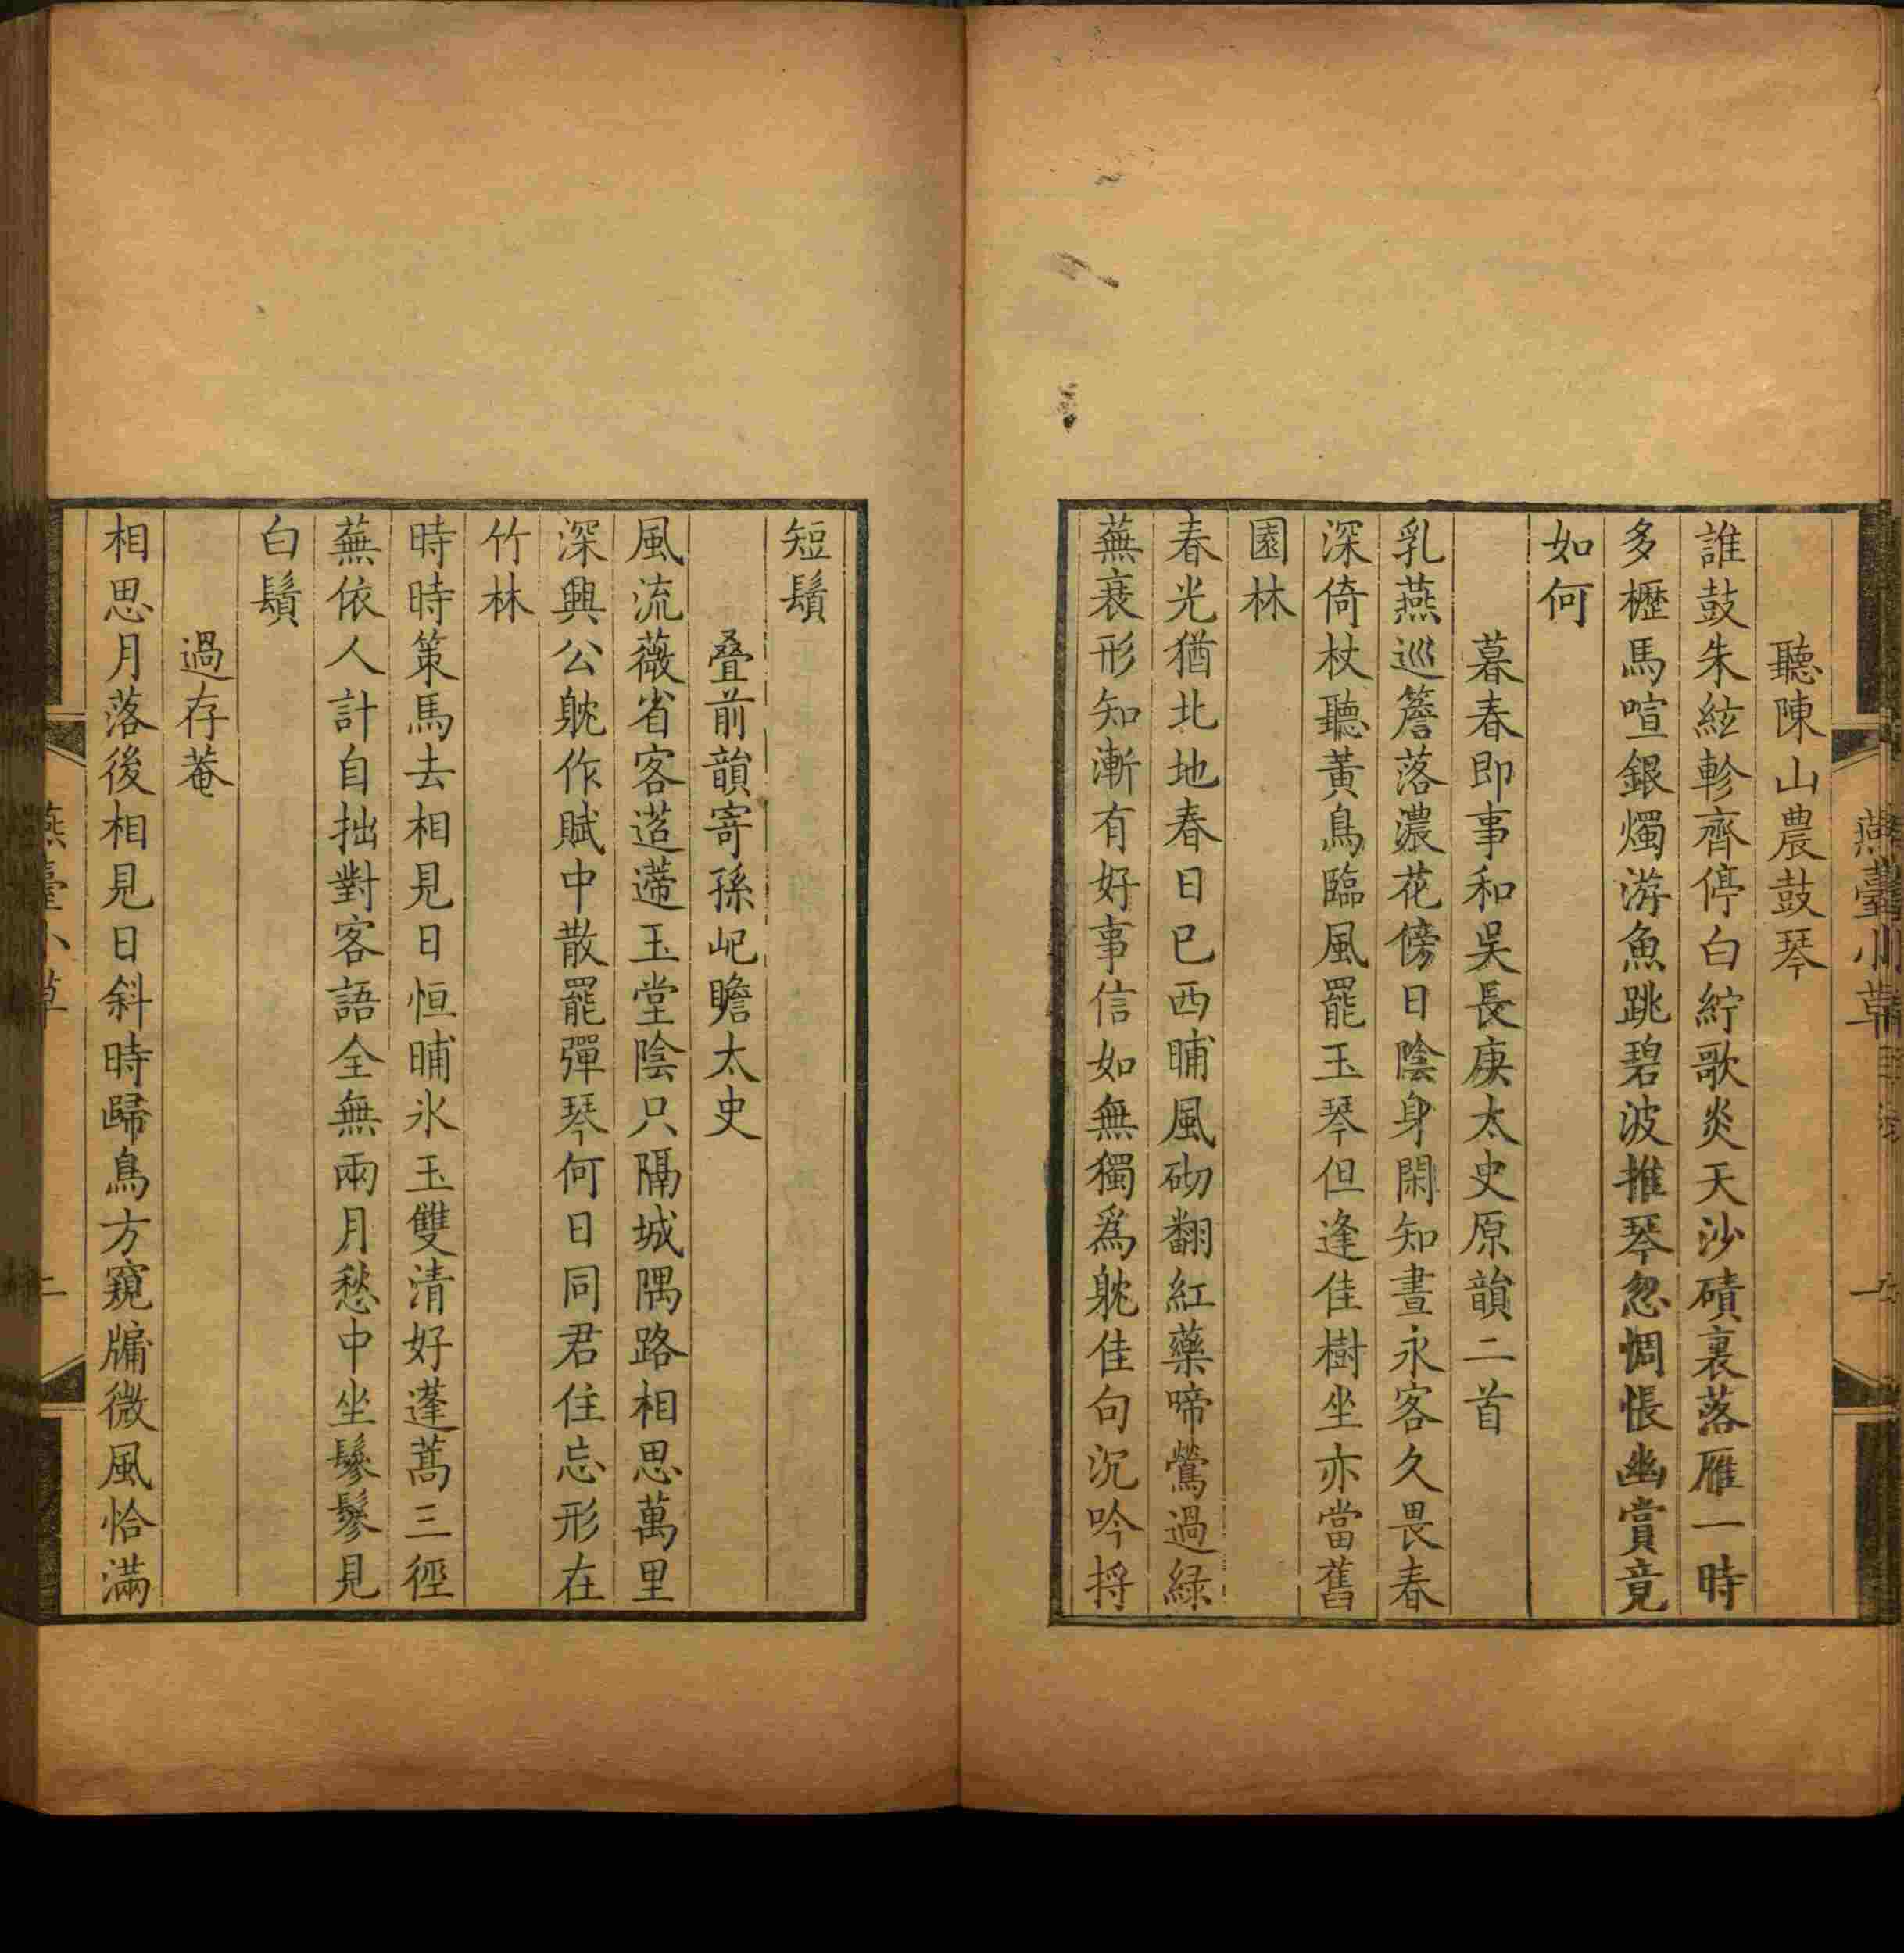 燕臺小草
一
聽陳山農鼓琴
誰鼓朱絃軫齊停白紵歌炎天沙磧裏落雁一時
多櫪馬喧銀燭游魚跳碧波推琴忽惆悵幽賞竟
如何
暮春即事和吳長庚太史原韻二首
乳燕巡簷落濃花傍日陰身閑知晝永客久畏春
深倚杖聽黃鳥臨風罷玉琴但逢佳樹坐亦當舊
園林
春光猶北地春日已西晡風砌翻紅藥啼鶯過綠
蕪衰形知漸有好事信如無獨爲躭佳句沉吟捋
短鬚
叠前韻寄孫屺瞻太史
風流薇省客迢遰玉堂陰只隔城隅路相思萬里
深興公躭作賦中散罷彈琴何日同君住忘形在
竹林
時時策馬去相見日恒晡氷玉雙清好蓬蒿三徑
蕪依人計自拙對客語全無兩月愁中坐鬖鬖見
白鬚
過存菴
相思月落後相見日斜時歸鳥方窺牖微風恰滿
燕臺小草
二